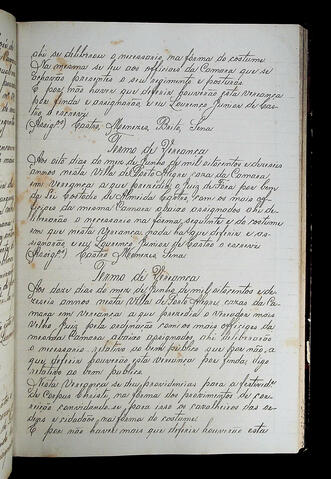 ahi se deliberou o necesario, na forma do costume
Na mesma se leu aos officiais da Camara que se
achavão prezentes o seu regimento e posturas
E por não haver que deferir houverão esta vereança
por finda e asignarão, e eu Lourenço Junior de Cas-
tro, o escrevy
(Assig.os) Castro, Menezes, Brito, Sena
Termo de Vereança
Aos oito dias do mez de Junho de mil oitocentos e dezaseis
annos nesta Villa de Porto Alegre caza da Camara,
em Vereança a que prezidio o Juiz de Fora por bem
da Lei Costodio de Almeida Castro com os mais of-
ficiaes da mesma Camara abaixo asignados ahi de-
liberarão o necessario na forma seguinte e do costume
em que nesta Vereança nada ha que deferir e as-
signarão e eu Lourenço Junior de Castro o escrevi
(Assig.os) Castro Menezes Sena
Termo de Vereança
Aos doze dias do mez de Junho de mil oitocentos e de-
zaseis annos nesta Villa de Porto Alegre cazas da Ca-
mara em Vereança a que prezidio o Vereador mais
Velho Juiz pela ordenação com os mais officiaes da
mesma Camara abaixo asignados, ahi deliberarão
o necesario relativo ao bem publico que por não a
que deferir houverão esta vereança por finda digo
relativo ao bem publico
Nesta Vereança se deu providencias para a festivid.e
de Corpus Christi, na forma dos provimentos de cor-
reição convidando-se para isso os cavalheiros das or-
dens e cidadãos, na forma do costume
E por não haver mais que deferir houverão esta